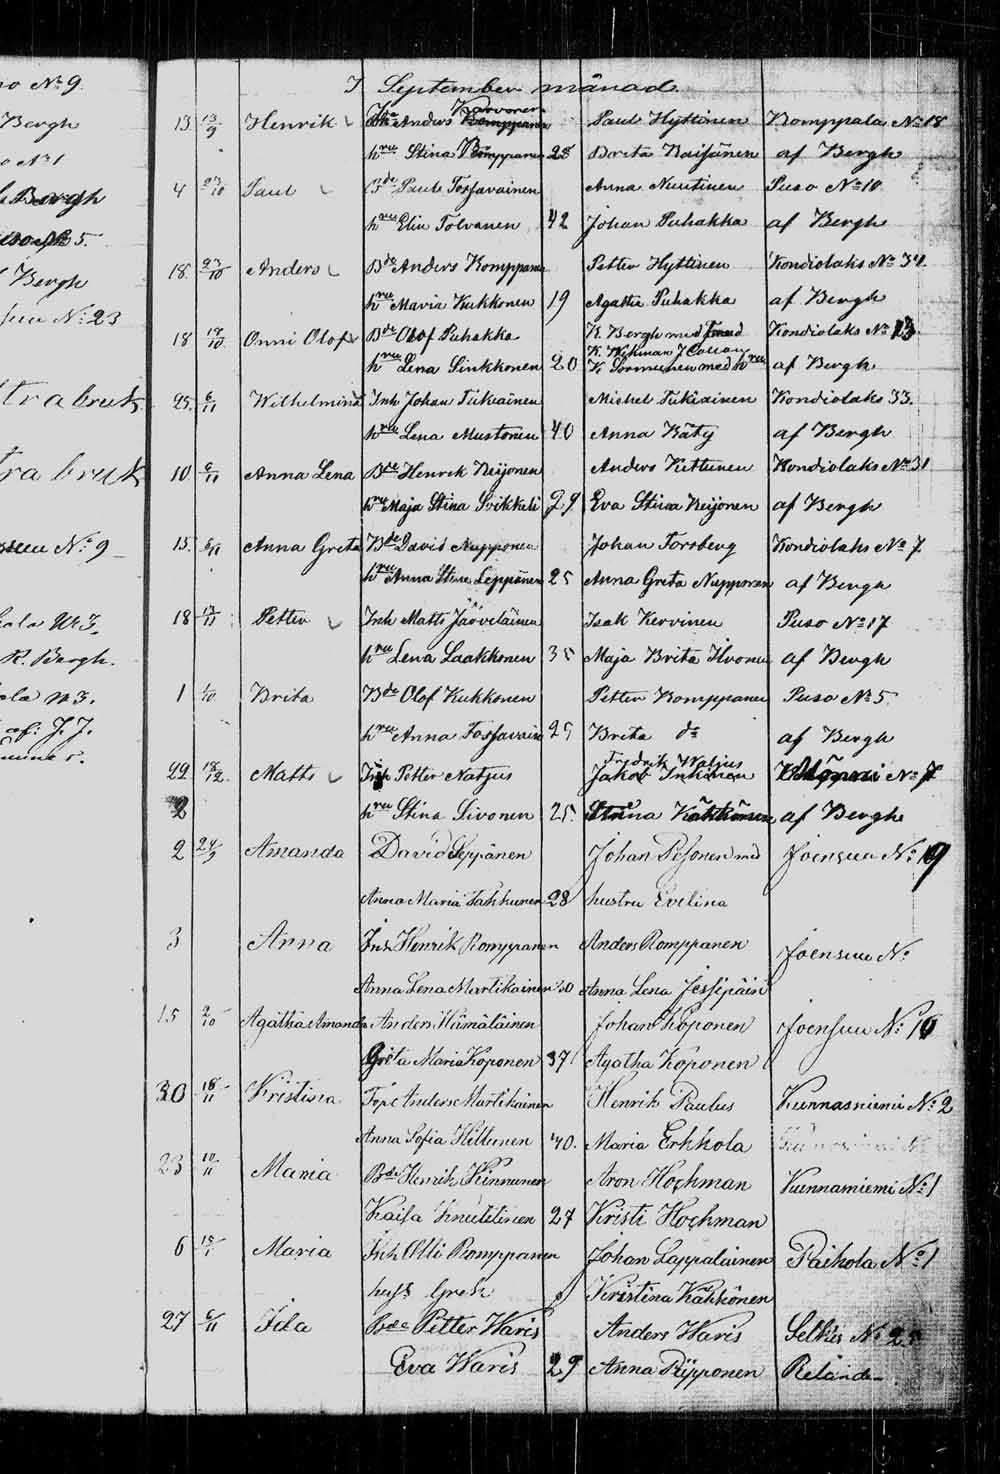 no No 9.
Bergh
o No 1
Bergh
5.
Bergh
No 23
trabruk
tra bruk
No 9
R. Bergh.
af: J. J.
I September månad.
Karvonen
13 13/9 Henrik Bde Anders Romppanen Paul Hyttinen Romppala No 18
hru Stina Romppanen 28 Brita Raisänen af Bergh
4 Paul Bde Paul Tossavainen Anna Nuutinen Puso No 10
hru Elin Tolvanen 42 Johan Puhakka af Bergh
18 Anders Bde Anders Romppanen Petter Hyttinen Kondiolaks No 34.
hru Maria Kukkonen 19 Agatha Puhakka af Bergh
18 18/10 Onni Olof Bde Olof Puhakka K. Bergh med Kondiolaks No 23
K. Wikman J Collan
hru Lena Sinkkonen 20 K Sormunen med hru af Bergh
25. 6/11 Wilhelmina Inh Johan Tiikkainen Michel Tiikkainen Kondiolaks 33.
hru Lena Mustonen 40 Anna Räty af Bergh
10 6/11 Anna Lena Bde Henrik Reijonen Anders Kettunen Kondiolaks No 31
hru Maja Stina Sirkkeli 29 Eva Stina Reijonen af Bergh
15. 6/11 Anna Greta Bde David Nupponen Johan Forsberg Kondiolaks No 7
hru Anna Stina Leppänen 25 Anna Greta Nupponen af Bergh
18 17/11 Petter Inh Matts Järveläinen Isak Kervinen Puso No 17
hru Lena Laakkonen 35 Maja Brita Hvonen af Bergh
1 1/10 Brita Bde Olof Kukkonen Petter Romppanen Puso No 5.
hru Anna Tossavain 25 Brita do af Bergh
Fredrik Watjus
22 18/12. Matts Inh Petter Natjus Jakob Inkinen No 7
2 hru Stina Sivonen 25. Stina Kähkönen af Bergh
2 24/9 Amanda David Leppänen Johan Pesonen med Joensuu No 19
Anna Maria Tahkunen 28 hustru Evelina
3 Anna Inh Henrik Romppanen Anders Romppanen Joensuu No
Anna Lena Martikainen 30 Anna Lena
15 2/10 Agatha Amanda Anders Hämäläinen Johan Koponen Joensuu No 10
Greta Maria Koponen 37 Agatha Koponen
30 18/11 Kristina Torp. Anders Martikainen Henrik Paulus Kunnasniemi No 2
Anna Sofia Hiltunen 40. Maria Erkkola
23 10/11 Maria Bde Henrik Kinnunen Aron Hochman Kunnasniemi No 1
Kaisa Knuutinen 27 Kristi Hochman
6 Maria Inh Olli Romppanen Johan Lappalainen Paihola No 1
Kristina Kähkönen
27 6/11 Ida Bde Petter Waris Anders Waris Selkis No 25
Eva Waris 29 Anna Piipponen Relander